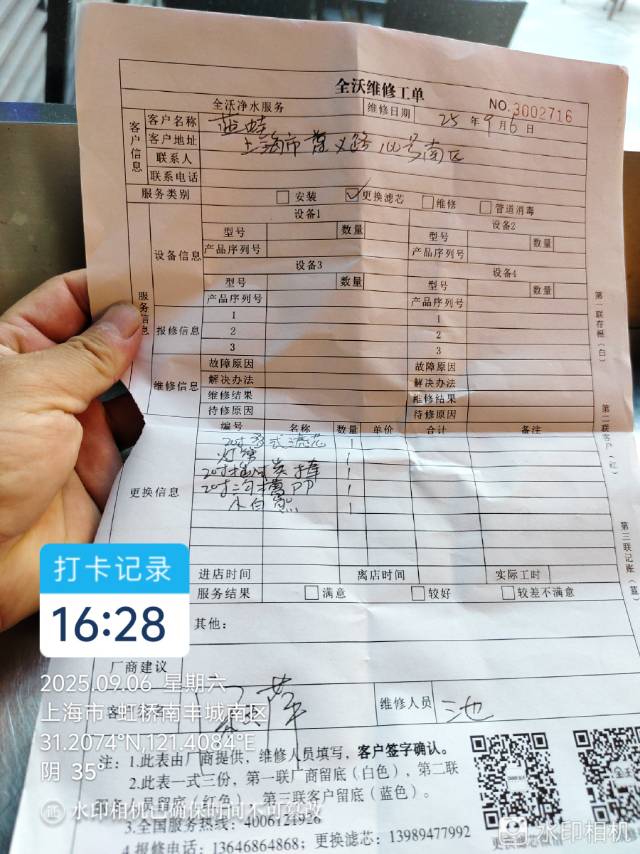 全沃维修工单
全沃净水服务 维修日期 25年9月6日 NO.3002716
客户信息
客户名称 蓝蛙
客户地址 上海市遵义路100号南区
联系人
联系电话
服务类别 安装 更换滤芯 维修 管道消毒
服务信息
设备信息
设备1 设备2
型号 数量 型号 数量
产品序列号 产品序列号
设备3 设备4
型号 数量 型号 数量
产品序列号 产品序列号
报修信息
1 1
2 2
3 3
维修信息
故障原因 故障原因
解决办法 解决办法
维修结果 维修结果
待修原因 待修原因
更换信息
编号 名称 数量 单价 合计 备注
20寸 式滤芯 1
1
20寸 炭棒 1
20寸 PP 1
小白 1
进店时间 离店时间 实际工时
服务结果 满意 较好 较差不满意
其他:
厂商建议
维修人员 池
注: 1.此表由厂商提供,维修人员填写,客户签字确认。
2.此表一式三份,第一联厂商留底(白色),第二联
员留底(红色),第三联客户留底(蓝色)。
3.全国服务热线:4006121926
4.报修电话:13646864868;更换滤芯:13989477992
第一联存根(白)
第二联客户(红)
第三联记账(蓝)
打卡记录
16:28
2025.09.06 星期六
上海市·虹桥南丰城南区
31.2074°N,121.4084°E
阴 35°
水印相机已确保时间不可篡改
水印相机